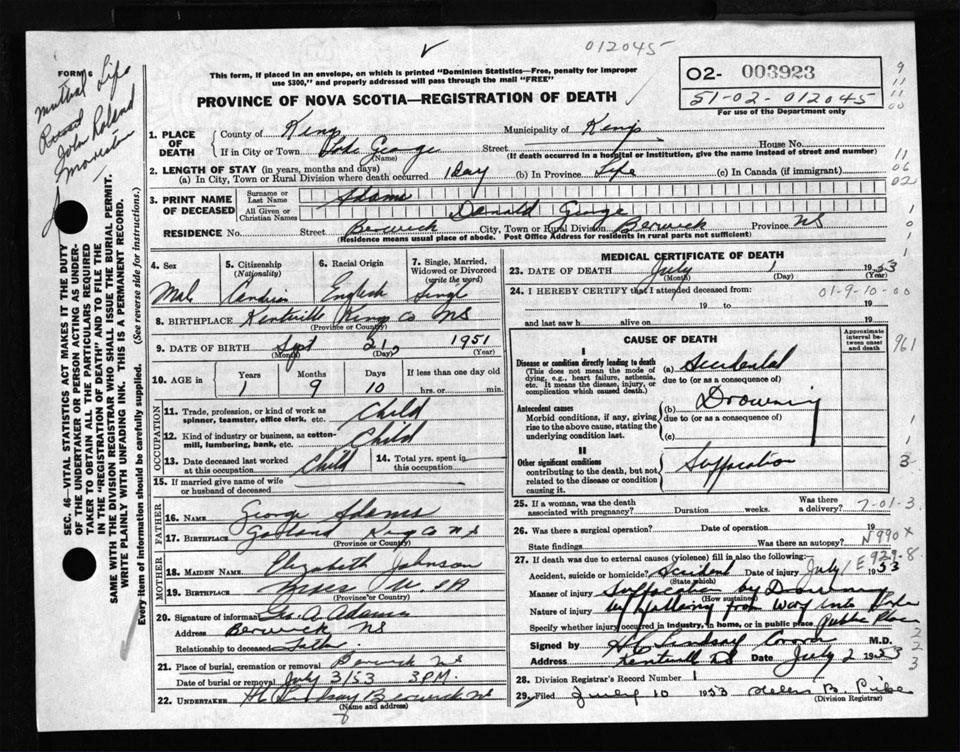 012045
FORM 6
This form, if placed in an envelope, on which is printed "Dominion Statistics—Free, penalty for improper
use $300," and properly addressed will pass through the mail "FREE"
O2- 003923
51-02-012045
For use of the Department only
PROVINCE OF NOVA SCOTIA—REGISTRATION OF DEATH
Mutual Life
John
1. PLACE OF DEATH
County of Kings Municipality of Kings
If in City or Town George Street House No.
(Name) (If death occurred in a hospital or institution, give the name instead of street and number)
2. LENGTH OF STAY (in years, months and days)
(a) In City, Town or Rural Division where death occurred 1 Day (b) In Province Life (c) In Canada (if immigrant)
3. PRINT NAME OF DECEASED
Surname or Last Name Adams
All Given or Christian Names Donald George
RESIDENCE No. Street Berwick City, Town or Rural Division Berwick Province NS
(Residence means usual place of abode. Post Office Address for residents in rural parts not sufficient)
4. Sex
5. Citizenship (Nationality)
6. Racial Origin
7. Single, Married, Widowed or Divorced (write the word)
Male English Single
8. BIRTHPLACE Kentville Kings Co NS
(Province or Country)
9. DATE OF BIRTH Sept 21 1951
(Month) (Day) (Year)
10. AGE in Years Months Days If less than one day old
1 9 10 hrs. or min.
OCCUPATION
11. Trade, profession, or kind of work as spinner, teamster, office clerk, etc. Child
12. Kind of industry or business, as cotton-mill, lumbering, bank, etc. Child
13. Date deceased last worked at this occupation Child
14. Total yrs. spent in this occupation
15. If married give name of wife or husband of deceased
FATHER
16. NAME George Adams
17. BIRTHPLACE Kings Co NS
(Province or Country)
MOTHER
18. MAIDEN NAME Elizabeth Johnson
19. BIRTHPLACE U.S.A
(Province or Country)
20. Signature of informant Geo. A. Adams
Address Berwick NS
Relationship to deceased Father
21. Place of burial, cremation or removal Berwick NS
Date of burial or removal July 3/53 3 P.M.
22. UNDERTAKER H Lindsay Berwick NS
(Name and address)
MEDICAL CERTIFICATE OF DEATH
23. DATE OF DEATH July 1 1953
(Month) (Day)
24. I HEREBY CERTIFY that I attended deceased from:
01-9-10-00
19 to 19
and last saw h alive on 19
CAUSE OF DEATH
Approximate interval between onset and death
I
Disease or condition directly leading to death
(This does not mean the mode of dying, e.g., heart failure, asthenia, etc. It means the disease, injury, or complication which caused death.)
(a) Accidental
due to (or as a consequence of)
Antecedent causes
Morbid conditions, if any, giving rise to the above cause, stating the underlying condition last.
(b) Drowning
due to (or as a consequence of)
(c)
II
Other significant conditions
contributing to the death, but not related to the disease or condition causing it.
Suffocation
25. If a woman, was the death associated with pregnancy? Duration weeks. Was there a delivery?
7-01-3
26. Was there a surgical operation? Date of operation 19
State findings Was there an autopsy?
N990X
27. If death was due to external causes (violence) fill in also the following:
E929-8
Accident, suicide or homicide? Accident Date of injury July 1 1953
(State which)
Manner of injury Suffocation by Drowning
(How sustained)
Nature of injury by falling from Warf into
Specify whether injury occurred in industry, in home, or in public place Public Place
Signed by H Lindsay M.D.
Address Kentville NS Date July 2 1953
28. Division Registrar's Record Number 1
29. Filed July 10 1953 Helen B.
(Division Registrar)
SEC. 46 VITAL STATISTICS ACT MAKES IT THE DUTY
OF THE UNDERTAKER OR PERSON ACTING AS UNDER-
TAKER TO OBTAIN ALL THE PARTICULARS REQUIRED
IN THE "REGISTRATION OF DEATH" AND TO FILE THE
SAME WITH THE DIVISION REGISTRAR WHO SHALL ISSUE THE BURIAL PERMIT.
WRITE PLAINLY WITH UNFADING INK. THIS IS A PERMANENT RECORD.
Every item of information should be carefully supplied. (See reverse side for instructions.)
9
11
11
00
11
06
02
1
0
1
1
961
1
1
3
2
2
3